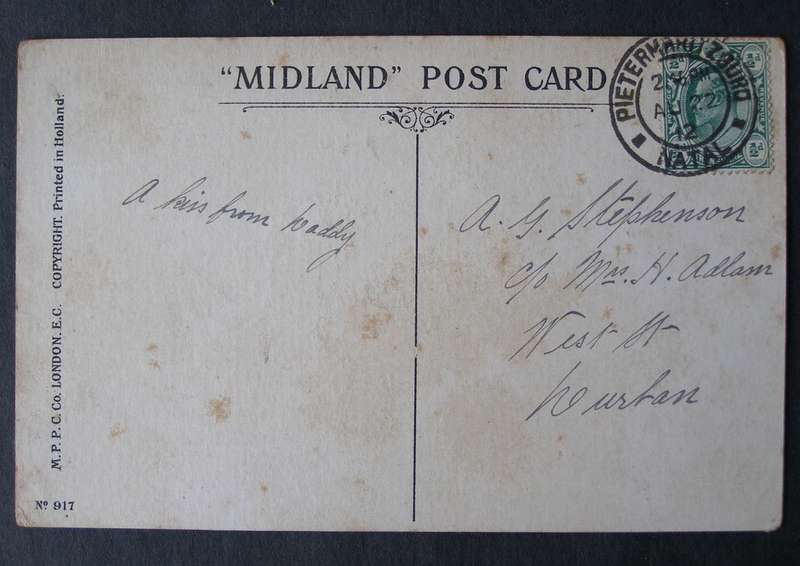 "MIDLAND" POST CARD
PIETERMARITZBURG
22
12
NATAL
A kiss from Daddy
A. G. Stephenson
c/o Mrs. H. Adlam
West St
Durban
M. P. P. C. Co. LONDON. E.C. COPYRIGHT. Printed in Holland.
Nº 917